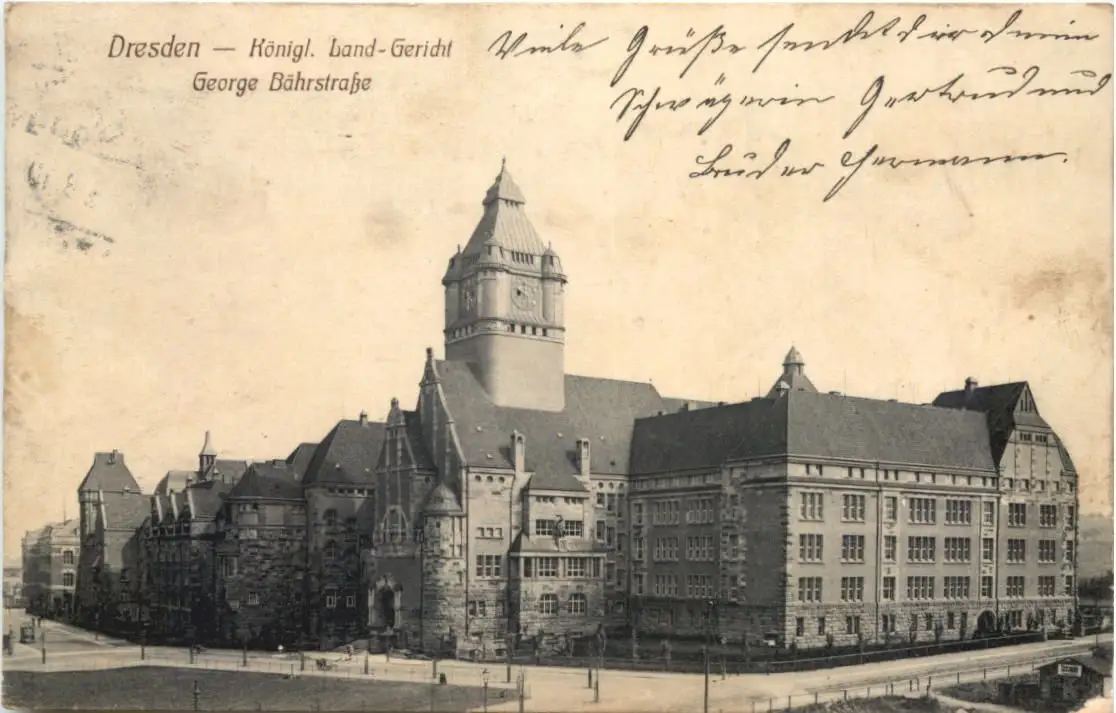 Dresden — Königl. Land-Gericht
George Bährstraße
Viele Grüße sendet dir deine
Schwägerin Gertrud und
Bruder Hermann.